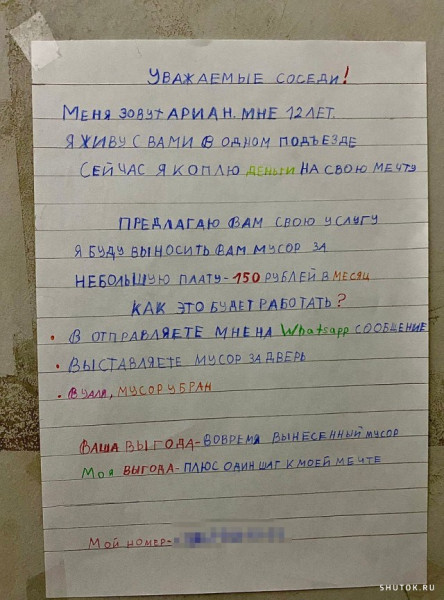 УВАЖАЕМЫЕ СОСЕДИ!
МЕНЯ ЗОВУТ АРИАН. МНЕ 12 ЛЕТ.
Я ЖИВУ С ВАМИ В ОДНОМ ПОДЪЕЗДЕ
СЕЙЧАС Я КОПЛЮ ДЕНЬГИ НА СВОЮ МЕЧТУ
ПРЕДЛАГАЮ ВАМ СВОЮ УСЛУГУ
Я БУДУ ВЫНОСИТЬ ВАМ МУСОР ЗА
НЕБОЛЬШУЮ ПЛАТУ - 150 РУБЛЕЙ В МЕСЯЦ
КАК ЭТО БУДЕТ РАБОТАТЬ?
• В ОТПРАВЛЯЕТЕ МНЕ НА Whatsapp СООБЩЕНИЕ
• ВЫСТАВЛЯЕТЕ МУСОР ЗА ДВЕРЬ
• ВУАЛЯ, МУСОР УБРАН
ВАША ВЫГОДА - ВОВРЕМЯ ВЫНЕСЕННЫЙ МУСОР
МОЯ ВЫГОДА - ПЛЮС ОДИН ШАГ К МОЕЙ МЕЧТЕ
МОЙ НОМЕР -
SHUTOK.RU